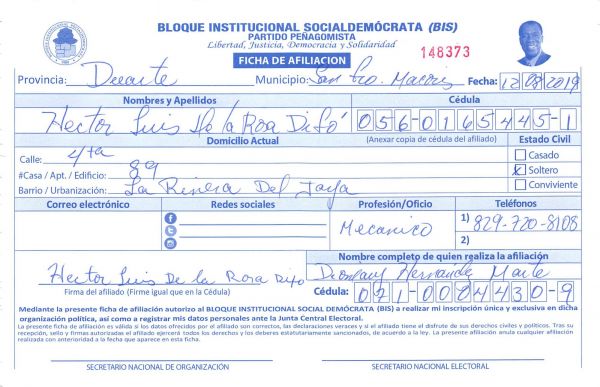 BLOQUE INSTITUCIONAL SOCIALDEMÓCRATA (BIS)
PARTIDO PEÑAGOMISTA
Libertad, Justicia, Democracia y Solidaridad
FICHA DE AFILIACION
148373
Provincia: Duarte Municipio: San Fco. Macorís Fecha: 12/08/2019
Nombres y Apellidos Cédula
Hector Luis De la Rosa Difó 056-0165445-1
Domicilio Actual (Anexar copia de cédula del afiliado) Estado Civil
Calle: 4ta
#Casa / Apt. / Edificio: 89
Barrio / Urbanización: La Rivera Del Jaya
Casado
x Soltero
Conviviente
Correo electrónico Redes sociales Profesión/Oficio Teléfonos
Mecanico
1) 829-720-8108
2)
Nombre completo de quien realiza la afiliación
Hector Luis De la Rosa Difo Hernandez Marte
Firma del afiliado (Firme igual que en la Cédula) Cédula: 071-0084430-9
Mediante la presente ficha de afiliación autorizo al BLOQUE INSTITUCIONAL SOCIAL DEMÓCRATA (BIS) a realizar mi inscripción única y exclusiva en dicha
organización política, así como a registrar mis datos personales ante la Junta Central Electoral.
La presente ficha de afiliación es válida si los datos ofrecidos por el afiliado son correctos, las declaraciones veraces y si el afiliado tiene el disfrute de sus derechos civiles y políticos. Tras su
recepción, sello y firmas autorizadas el afiliado ejercerá todos los derechos y los deberes estatutariamente sancionados, de acuerdo a la ley. La presente afiliación anula cualquier afiliación
realizada con anterioridad a la fecha que aparece en esta ficha.
SECRETARIO NACIONAL DE ORGANIZACIÓN SECRETARIO NACIONAL ELECTORAL